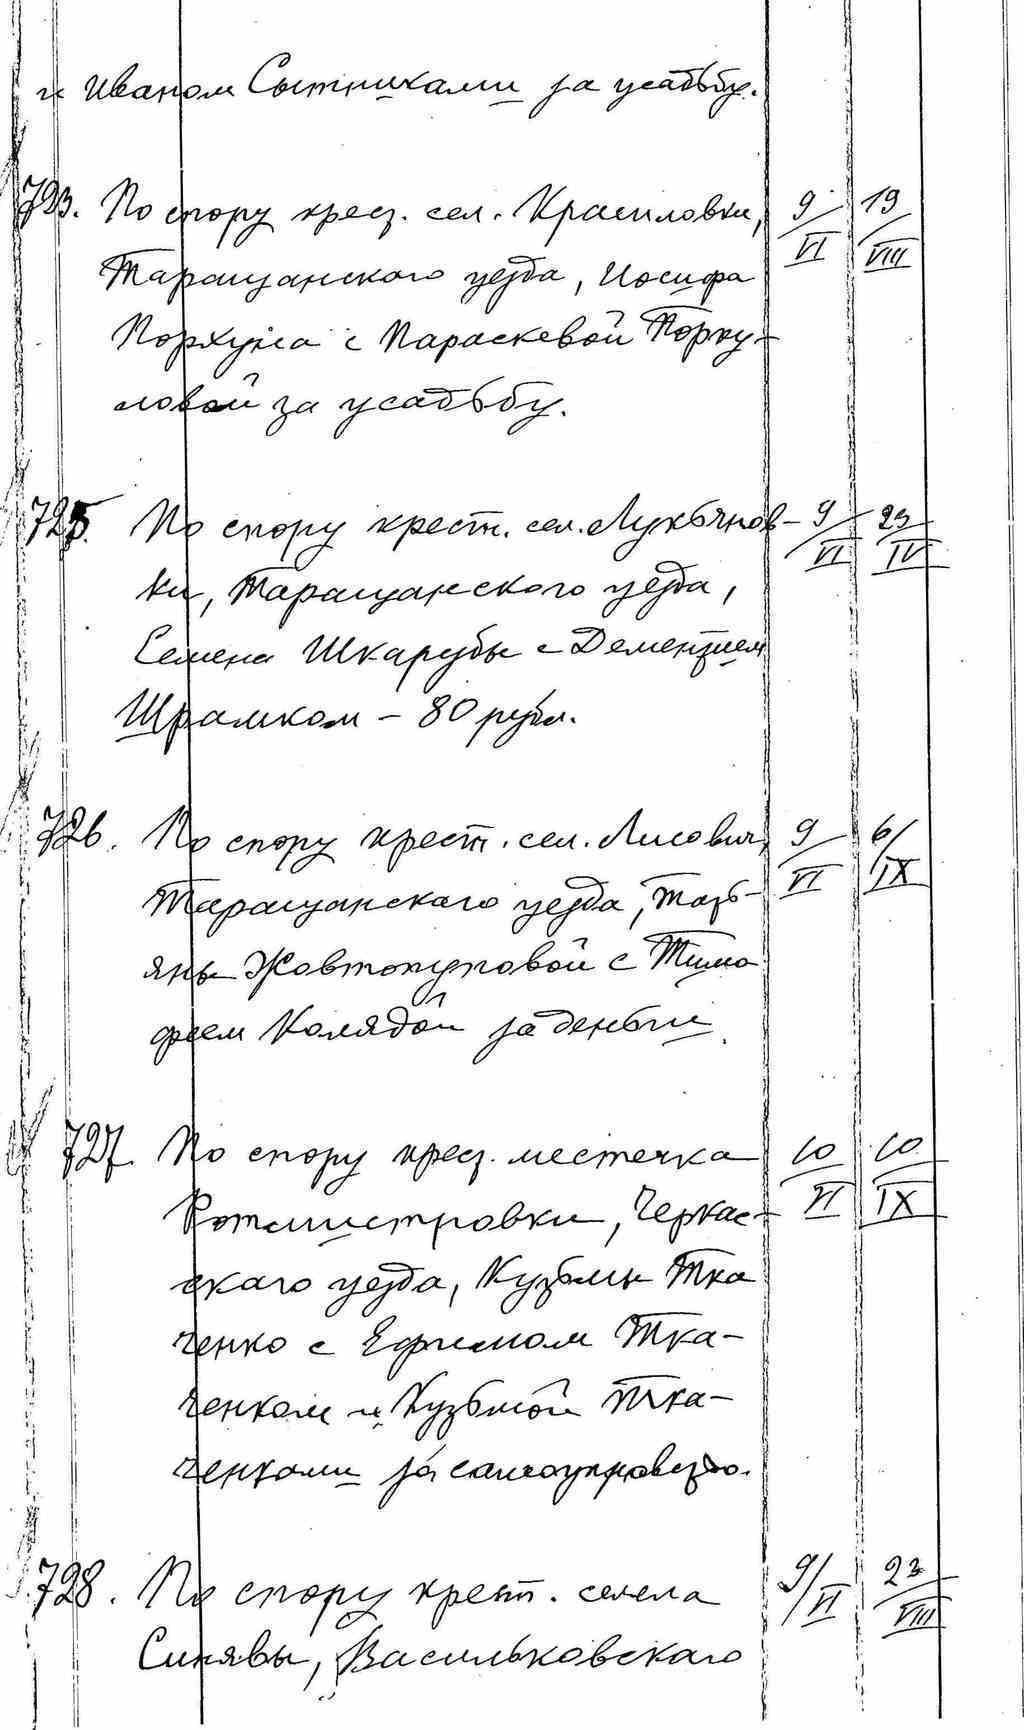 и Иваном Сытниками за усадьбу.
723. По спору крест. сел. Красиловки, 9/VI 19/VIII
Таращанского уезда, Иосифа
Порхуна с Параскевой Порку-
ловой за усадьбу.
725. По спору крестн. сел. Лукьянов- 9/VI 23/IV
ки, Таращанского уезда,
Семена Шкарубы с Дементием
Шрамком – 80 рубл.
726. По спору крест. сел. Лисович, 9/VI 6/IX
Таращанского уезда, Тать-
яны Жовтопуповой с Тимо
феем Колядой за деньги.
727. По спору крест. местечка 10/VI 10/IX
Ротмистровки, Черкас-
скаго уезда, Кузьмы Тка
ченко с Ефимом Тка-
ченком и Кузьмой Тка-
ченками за самоуправство.
728. По спору крест. селела 9/VI 23/VIII
Синявы, Васильковскаго